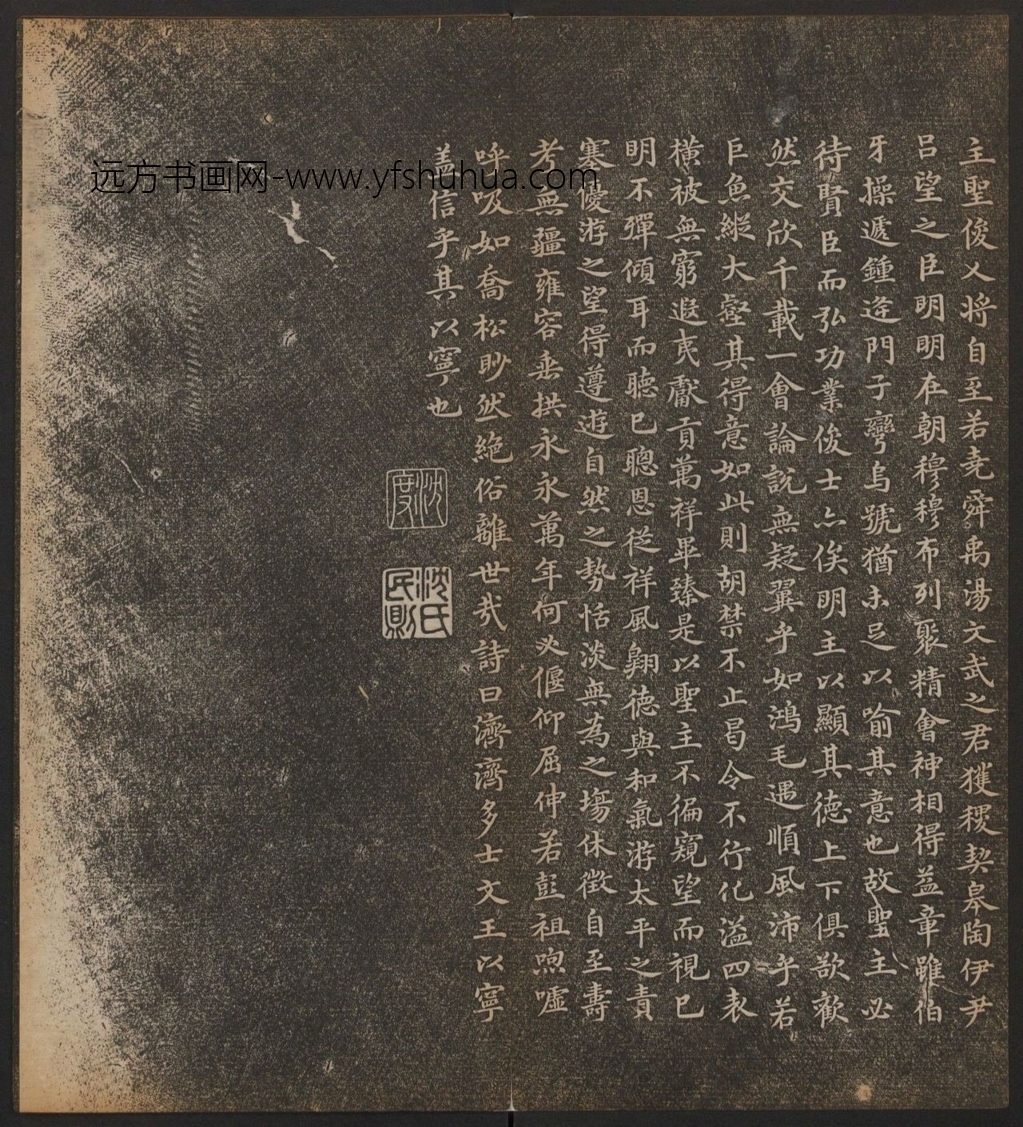 主聖俊乂將自至若堯舜禹湯文武之君獲稷契皋陶伊尹
呂望之臣明明在朝穆穆布列聚精會神相得益章雖伯
牙操遞鍾逢門子彎烏號猶未足以喻其意也故聖主必
待賢臣而弘功業俊士亦俟明主以顯其德上下俱欲歡
然交欣千載一會論說無疑翼乎如鴻毛遇順風沛乎若
巨魚縱大壑其得意如此則胡禁不止曷令不行化溢四表
橫被無窮遐夷獻貢萬祥畢臻是以聖主不徧窺望而視已
明不殫傾耳而聽已聰恩從祥風翱德與和氣游太平之責
塞優游之望得遵遊自然之勢恬淡無為之場休徵自至壽
考無疆雍容垂拱永永萬年何必偃仰屈伸若彭祖呴噓
呼吸如喬松眇然絕俗離世哉詩曰濟濟多士文王以寧
蓋信乎其以寧也
沈度
沈氏民則
远方书画网-www.yfshuhua.com